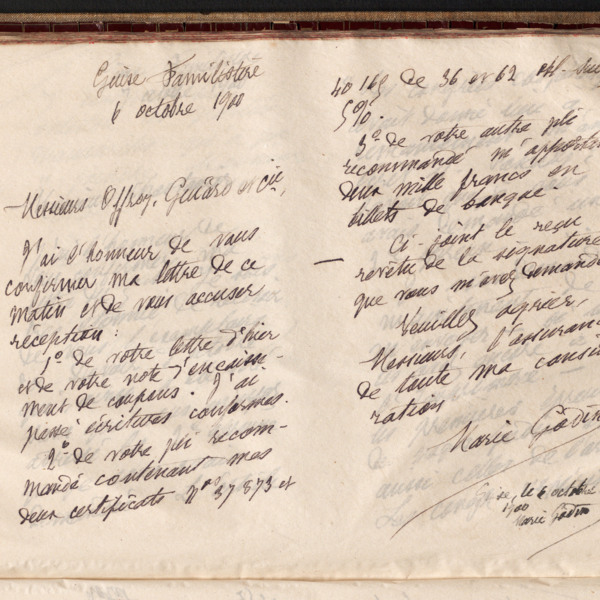 Guise Familistère
6 octobre 1900
Messieurs Offroy, Guiard et Cie,
J'ai l'honneur de vous
confirmer ma lettre de ce
matin et de vous accuser
réception :
1o de votre lettre d'hier
et de votre note d'encaisse-
ment de coupons. J'ai
passé écritures conformes.
2o de votre pli recom-
mandé contenant mes
deux certificats Nos 37 873 et
40 169 de 36 et 62 obl.
5%.
3o de votre autre pli
recommandé m'apportant
deux mille francs en
billets de banque.
Ci joint le reçu
revêtu de la signature
que vous m'avez demandé
Veuillez agréer,
Messieurs, l'assurance
de toute ma consi
ration
Marie Godin
le 6 octobre
1900
Marie Godin